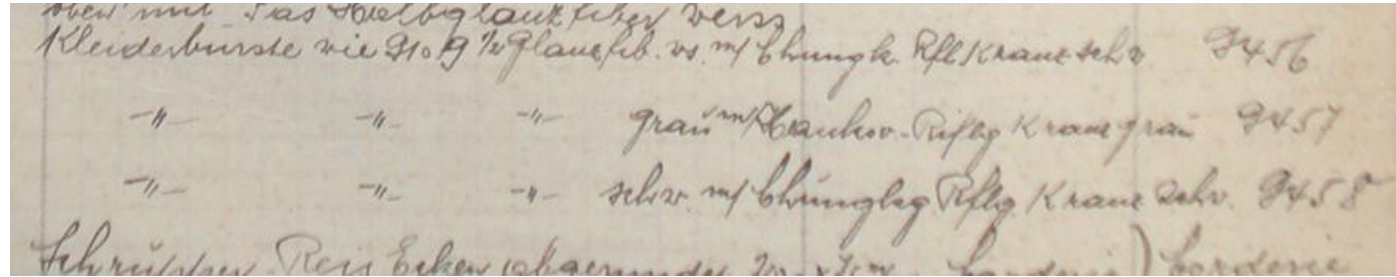 oben mit Das Halbglanzfiber weiss
Kleiderbürste wie 910 9 ½ Glanzfib. ws. m/ Chungk. Rfl Kranz schw 9456
-"- -"- -"- grau m/ Hankow-Riflg Kranz grau 9457
-"- -"- -"- schw. m/ Chungkg Rflg Kranz schw. 9458
Schrupper Reis Ecken abgerundet bordenie bordenie